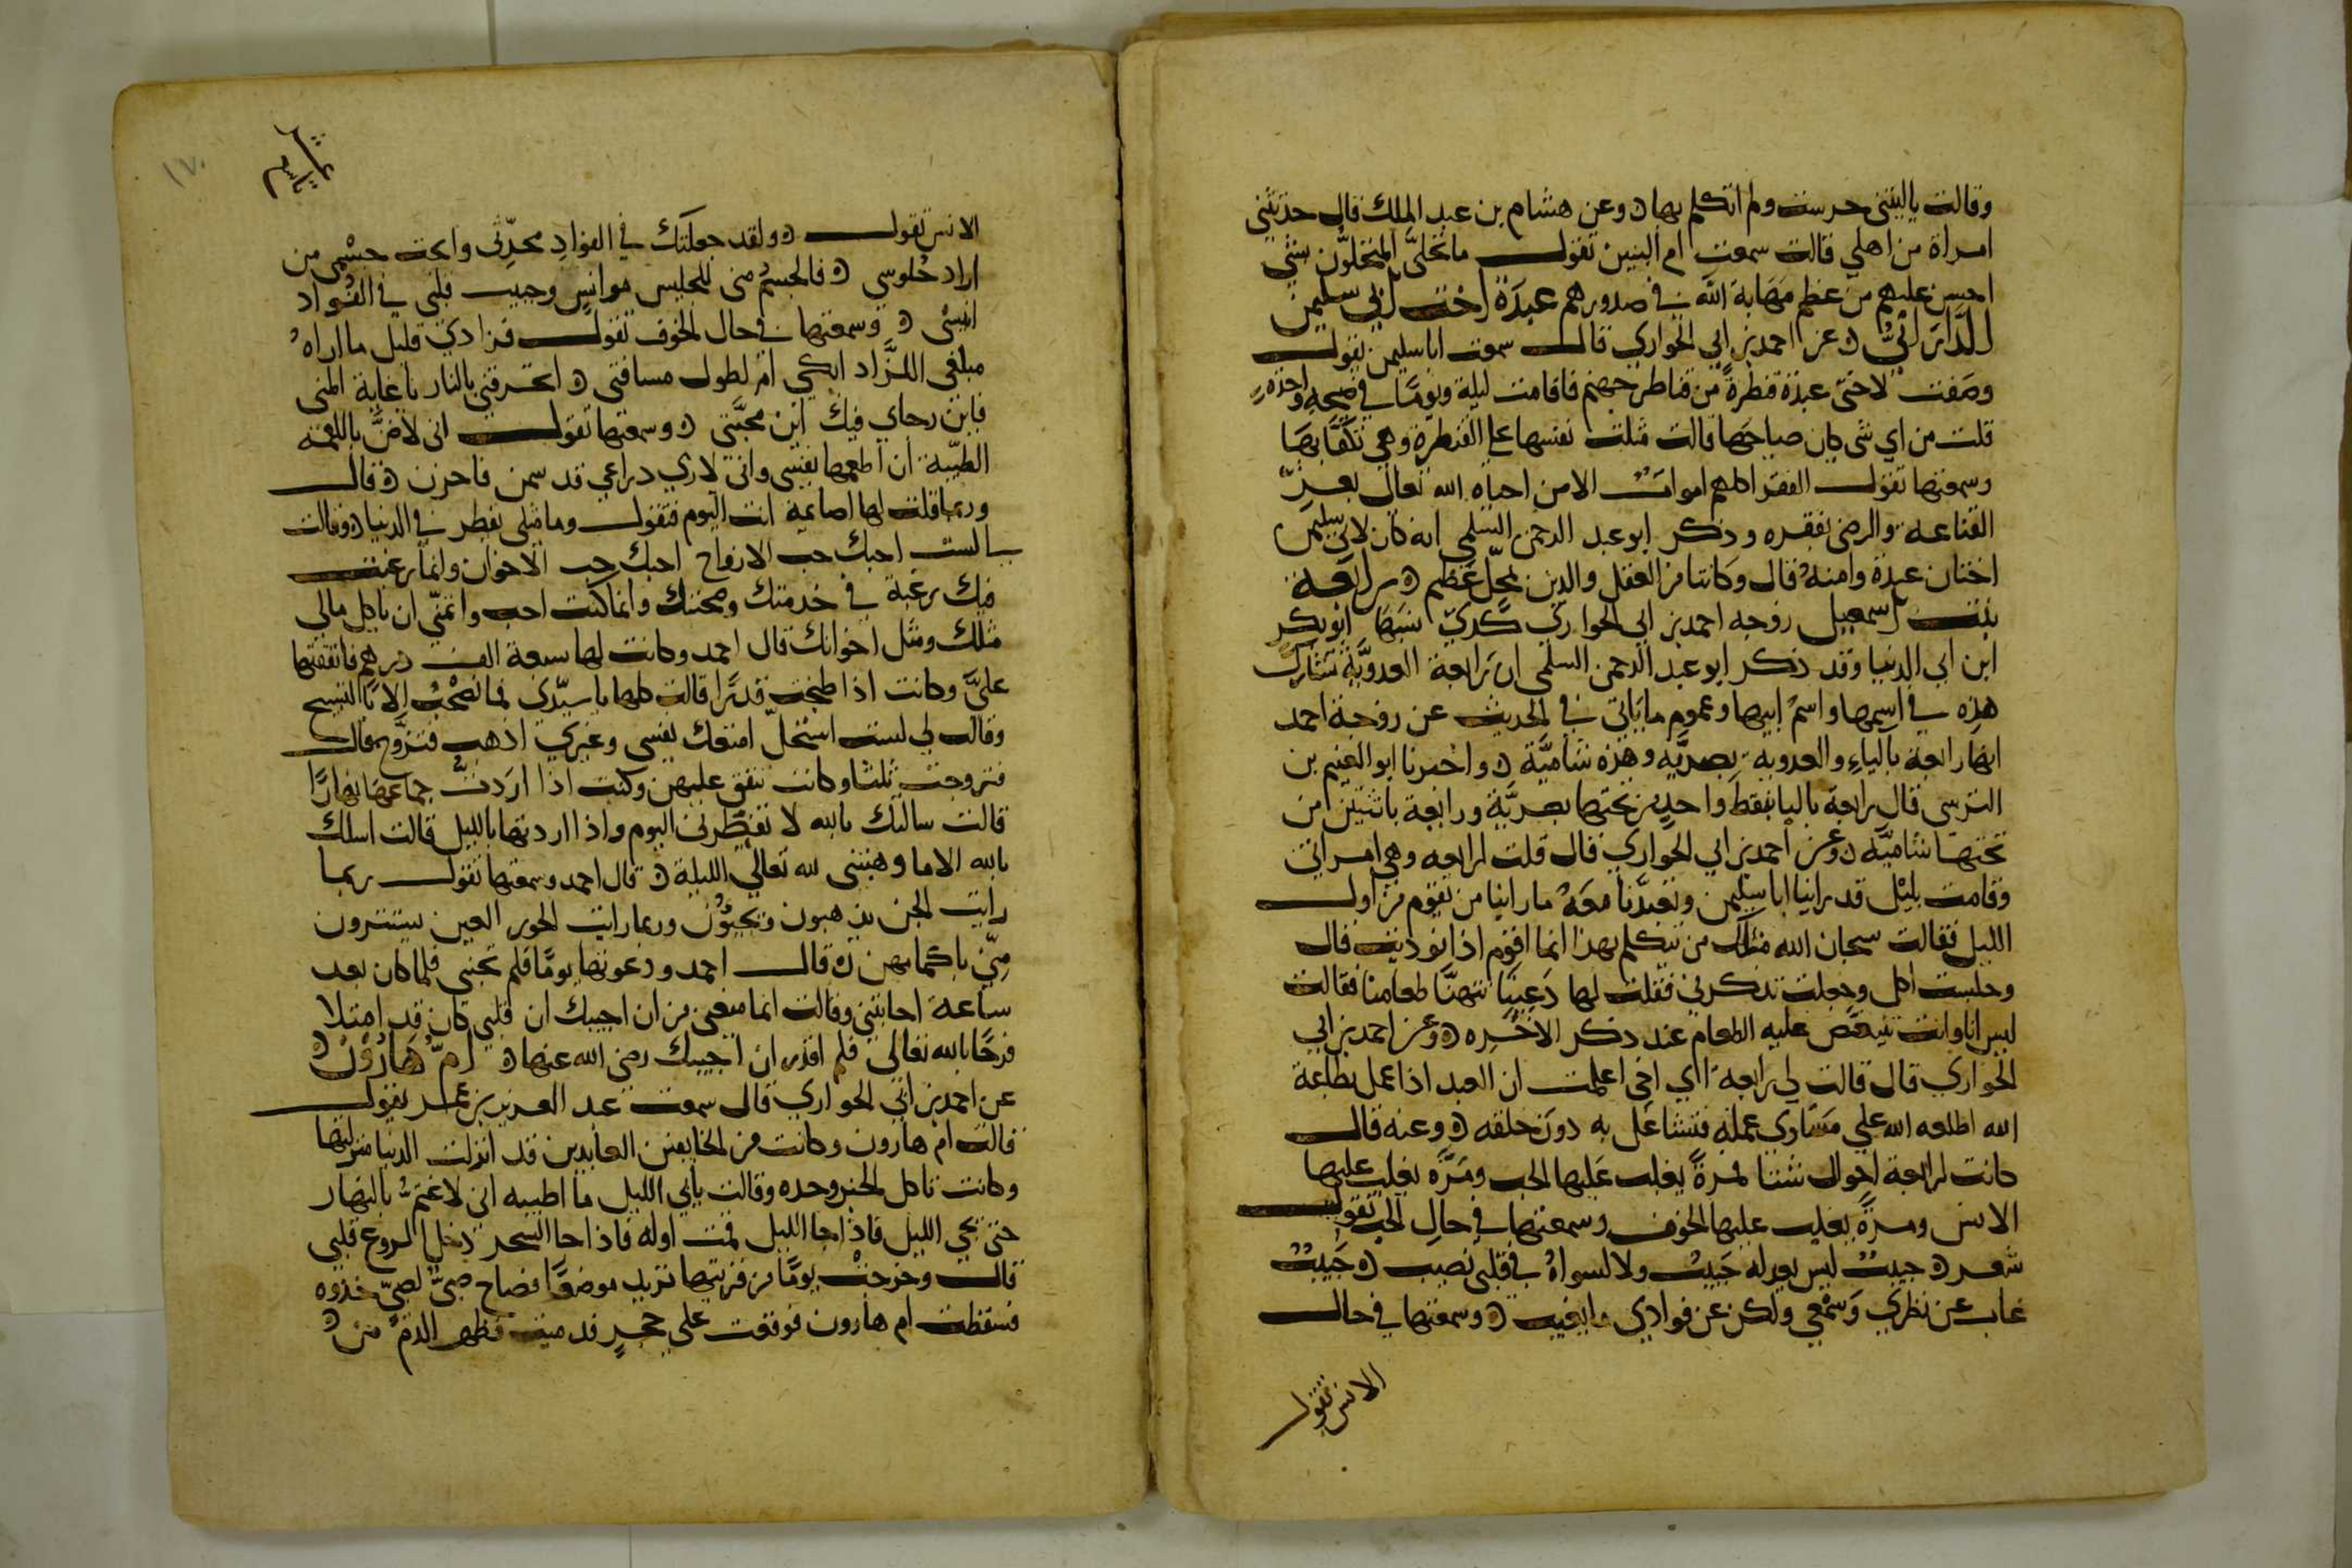 وقالت ياليتني خرست ولم اتكلم بها ه وعن هشام بن عبد الملك قال حدثتني
امراة من اهلي قالت سمعت ام البنين تقول ما تحلّى المتحلّون بشي
احسن عليهم من عظم مَهَابة الله في صدورهم عبدَة اخت ابي سليمن
الدّاراني ه عن احمد بن ابي الحواري قال سمعت ابا سليمن يقول
وصَفت لاختي عبدة قنطرةً من قناطر جهنم فاقامت ليلة ويومًا في صيحةٍ واحدةٍ
قلت من اي شي كان صياحها قالت مثلت نفسها على القنطرة وهي تكفّا بها
وسمعتها تقول الفقرا كلهم اموات الا من احياه الله تعالى بعزّ
القناعة والرضى بفقره وذكر ابو عبد الرحمن السلمي انه كان لابي سليمن
اختان عبدة وامنة قال وكانتا من العقل والدين بمحلّ عظيم ه رابعة
بنت اسمعيل زوجة احمد بن ابي الحواري كذي نسبَها ابو بكر
ابن ابي الدنيا وقد ذكر ابو عبد الرحمن السلمي ان رابعة العدويَّة تشارك
هذه في اسمها واسم ابيها وعموم ما ياتي في الحديث عن زوجة احمد
انها رابعة بالياءِ والعدوية بصريَّة وهذه شاميَّة ه واخبرنا ابو الغنيم بن
النرسي قال رابعة باليا بنقطة واحدة من تحتها بصريَّة ورايعة باثنتين من
تحتها شاميَّة ه وعن احمد بن ابي الحواري قال قلت لرابعه وهي امراتي
وقامت بليل قد راينا ابا سليمن وتعبدّنا معَهُ ما راينا من يقوم من اول
الليل فقالت سبحان الله مثلك من يتكلم بهذا انما اقوم اذا نوديت قال
وجلست اكل وجعلت تذكرني فقلت لها دَعينا نتهنّا طعامنا فقالت
ليس انا وانت يتنغّص عليه الطعام عند ذكر الاخره ه وعن احمد بن ابي
الحواري قال قالت لي رابعة اي اخي اعلمت ان العبد اذا عمل بطاعة
الله اطلعه الله على مساوي عمله فتشاغل به دون خلقه ه وعنه قال
كانت لرابعة احوال شتا فمرةً يغلب عليها الحب ومَرَّه يغلب عليها
الانس ومرةً يغلب عليها الخوف وسمعتها في حال الحب تقول
شعر ه حبيبٌ ليس يعدله حَبيبٌ ولا لسواهُ في قلبي نصيب ه حَبيبٌ
غاب عن نظري وَسَمْعي ولكن عن فوادي ما يغيب ه وسمعتها في حال
الانس تقول
١٧٠
الانس تقول ه ولقد جعلتك في الفوادِ محدّثي وابحت جسمي من
اراد جُلوسي ه فالجسمُ مني للجليس موانسٍ وحبيب قلبي في الفُواد
انيسي ه وسمعتها في حال الخوف تقول فزادي قليل ما اراهُ
مبلغي اللزَّاد ابكي ام لطول مسافتي ه اتحرقني بالنار يا غاية المنى
فاين رجاي فيك اين محبّتي ه وسمعتها تقول اني لاضنُّ باللقمة
الطيّبة ان اطعمها نفسي واني لاري ذراعي قد سمن فاحزن ه قال
وربما قلت لها اصايمة انت اليوم فتقول وما مثلي يفطر في الدنيا ه وقالت
لي لست احبك حب الازواج احبك حب الاخوان وانما رغبت
فيك رغبة في خدمتك وصحبتك وانما كنت احب واتمنّى ان ياكل مالي
مثلك ومثل اخوانك قال احمد وكانت لها سبعة الف درهم فانفقتها
عليَّ وكانت اذا طبخت قدرًا قالت كلها يا سيّدي فما نضجت الا بالتسبيح
وقالت لي لست استحلّ امنعك نفسي وغيري اذهب فتزوّج قال
فتزوجت ثلثا وكانت تنفق عليهن وكنت اذا ارَدتُّ جماعها نهارًا
قالت سالتك بالله لا تفطّرني اليوم واذا اردتها بالليل قالت اسلك
بالله الا ما وهبتني لله تعالى الليلة ه قال احمد وسمعتها تقول ربما
رايت الجن يذهبون ويجيؤُن وربما رايت الحور العين يستترون
مِنّي باكمامهن ه قال احمد ودعوتها يومًا فلم تجبني فلما كان بعد
ساعة اجابتني وقالت انما منعني من ان اجيبك ان قلبي كان قد امتلا
فرحًا بالله تعالى فلم اقدر ان اجيبك رضي الله عنها ه امّ هارون ه
عن احمد بن ابي الحواري قال سمعت عبد العزيز بن عمير يقول
قالت ام هارون وكانت من الخايفين العابدين قد انزلت الدنيا منزلتها
وكانت تاكل الخبز وحده وقالت بابي الليل ما اطيبه اني لاغتمّ بالنهار
حتى يجي الليل فاذا جا الليل قمت اوله فاذا جا السحر دخل الروع قلبي
قال وخرجت يومًا من قريتها تريد موضعًا فصاح صبيٌّ لصبيٍّ خذوه
فسقطت ام هارون فوقعت على حجرٍ فدميت فظهر الدم من ه